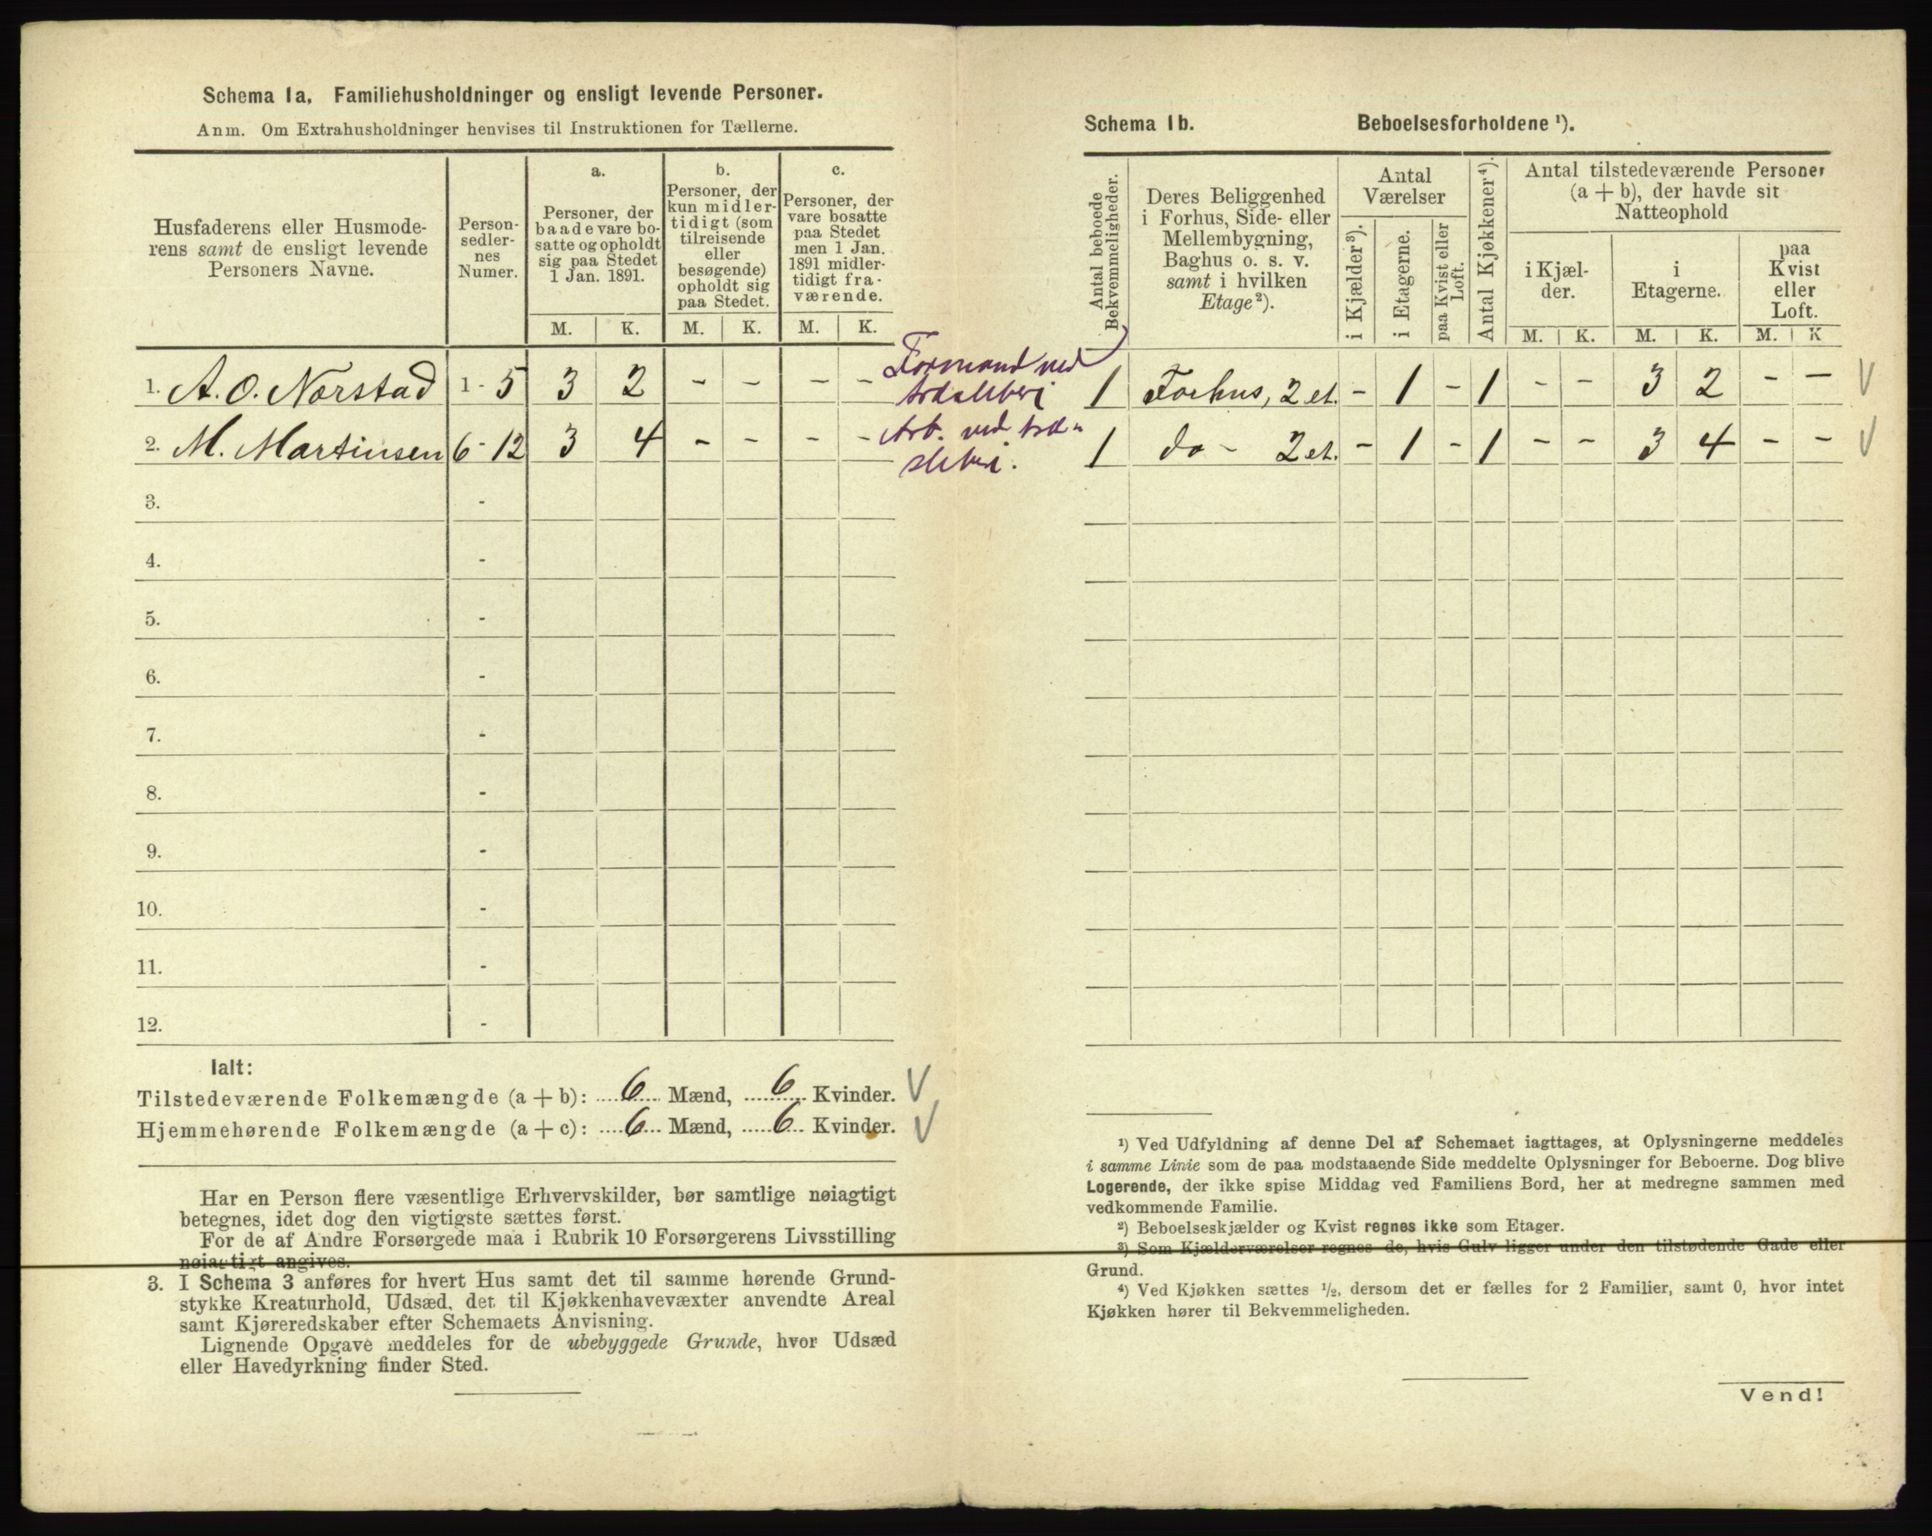 Schema 1a. Familiehusholdninger og ensligt levende Personer.
Anm. Om Extrahusholdninger henvises til Instruktionen for Tællerne.
Husfaderens eller Husmode-
rens samt de ensligt levende
Personers Navne.
Person-
sedler-
nes
Numer.
a.
Personer, der
baade vare bo-
satte og opholdt
sig paa Stedet
1 Jan. 1891.
b.
Personer, der
kun midler-
tidigt (som
tilreisende
eller
besøgende)
opholdt sig
paa Stedet.
c.
Personer, der
vare bosatte
paa Stedet
men 1 Jan.
1891 midler-
tidigt fra-
værende.
M. K. M. K. M. K.
1. A. O. Norstad 1 - 5 3 2 - - - - Formand ved
2. M. Martinsen 6 - 12 3 4 - - - - Arb. ved
3. -
4. -
5. -
6. -
7. -
8. -
9. -
10. -
11. -
12. -
Ialt:
Tilstedeværende Folkemængde (a + b): 6 Mænd, 6 Kvinder.
Hjemmehørende Folkemængde (a + c): 6 Mænd, 6 Kvinder.
Har en Person flere væsentlige Erhvervskilder, bør samtlige nøiagtigt
betegnes, idet dog den vigtigste sættes først.
For de af Andre Forsørgede maa i Rubrik 10 Forsørgerens Livsstilling
nøiagtigt angives.
3. I Schema 3 anføres for hvert Hus samt det til samme hørende Grund-
stykke Kreaturhold, Udsæd, det til Kjøkkenhavevæxter anvendte Areal
samt Kjøreredskaber efter Schemaets Anvisning.
Lignende Opgave meddeles for de ubebyggede Grunde, hvor Udsæd
eller Havedyrkning finder Sted.
Schema 1b. Beboelsesforholdene ¹).
Antal beboede
Bekvemmeligheder.
Deres Beliggenhed
i Forhus, Side- eller
Mellembygning,
Baghus o. s. v.
samt i hvilken
Etage²).
Antal
Værelser
i Kjælder³).
i Etagerne.
paa Kvist eller
Loft.
Antal Kjøkkener⁴).
Antal tilstedeværende Personer
(a + b), der havde sit
Natteophold
i Kjæl-
der.
i
Etagerne.
paa
Kvist
eller
Loft.
M. K. M. K. M. K
1 Forhus, 2 et. - 1 - 1 - - 3 2 - -
1 do - 2 et. - 1 - 1 - - 3 4 - -
¹) Ved Udfyldning af denne Del af Schemaet iagttages, at Oplysningerne meddeles
i samme Linie som de paa modstaaende Side meddelte Oplysninger for Beboerne. Dog blive
Logerende, der ikke spise Middag ved Familiens Bord, her at medregne sammen med
vedkommende Familie.
²) Beboelseskjælder og Kvist regnes ikke som Etager.
³) Som Kjælderværelser regnes de, hvis Gulv ligger under den tilstødende Gade eller
Grund.
⁴) Ved Kjøkken sættes ½, dersom det er fælles for 2 Familier, samt 0, hvor intet
Kjøkken hører til Bekvemmeligheden.
Vend!